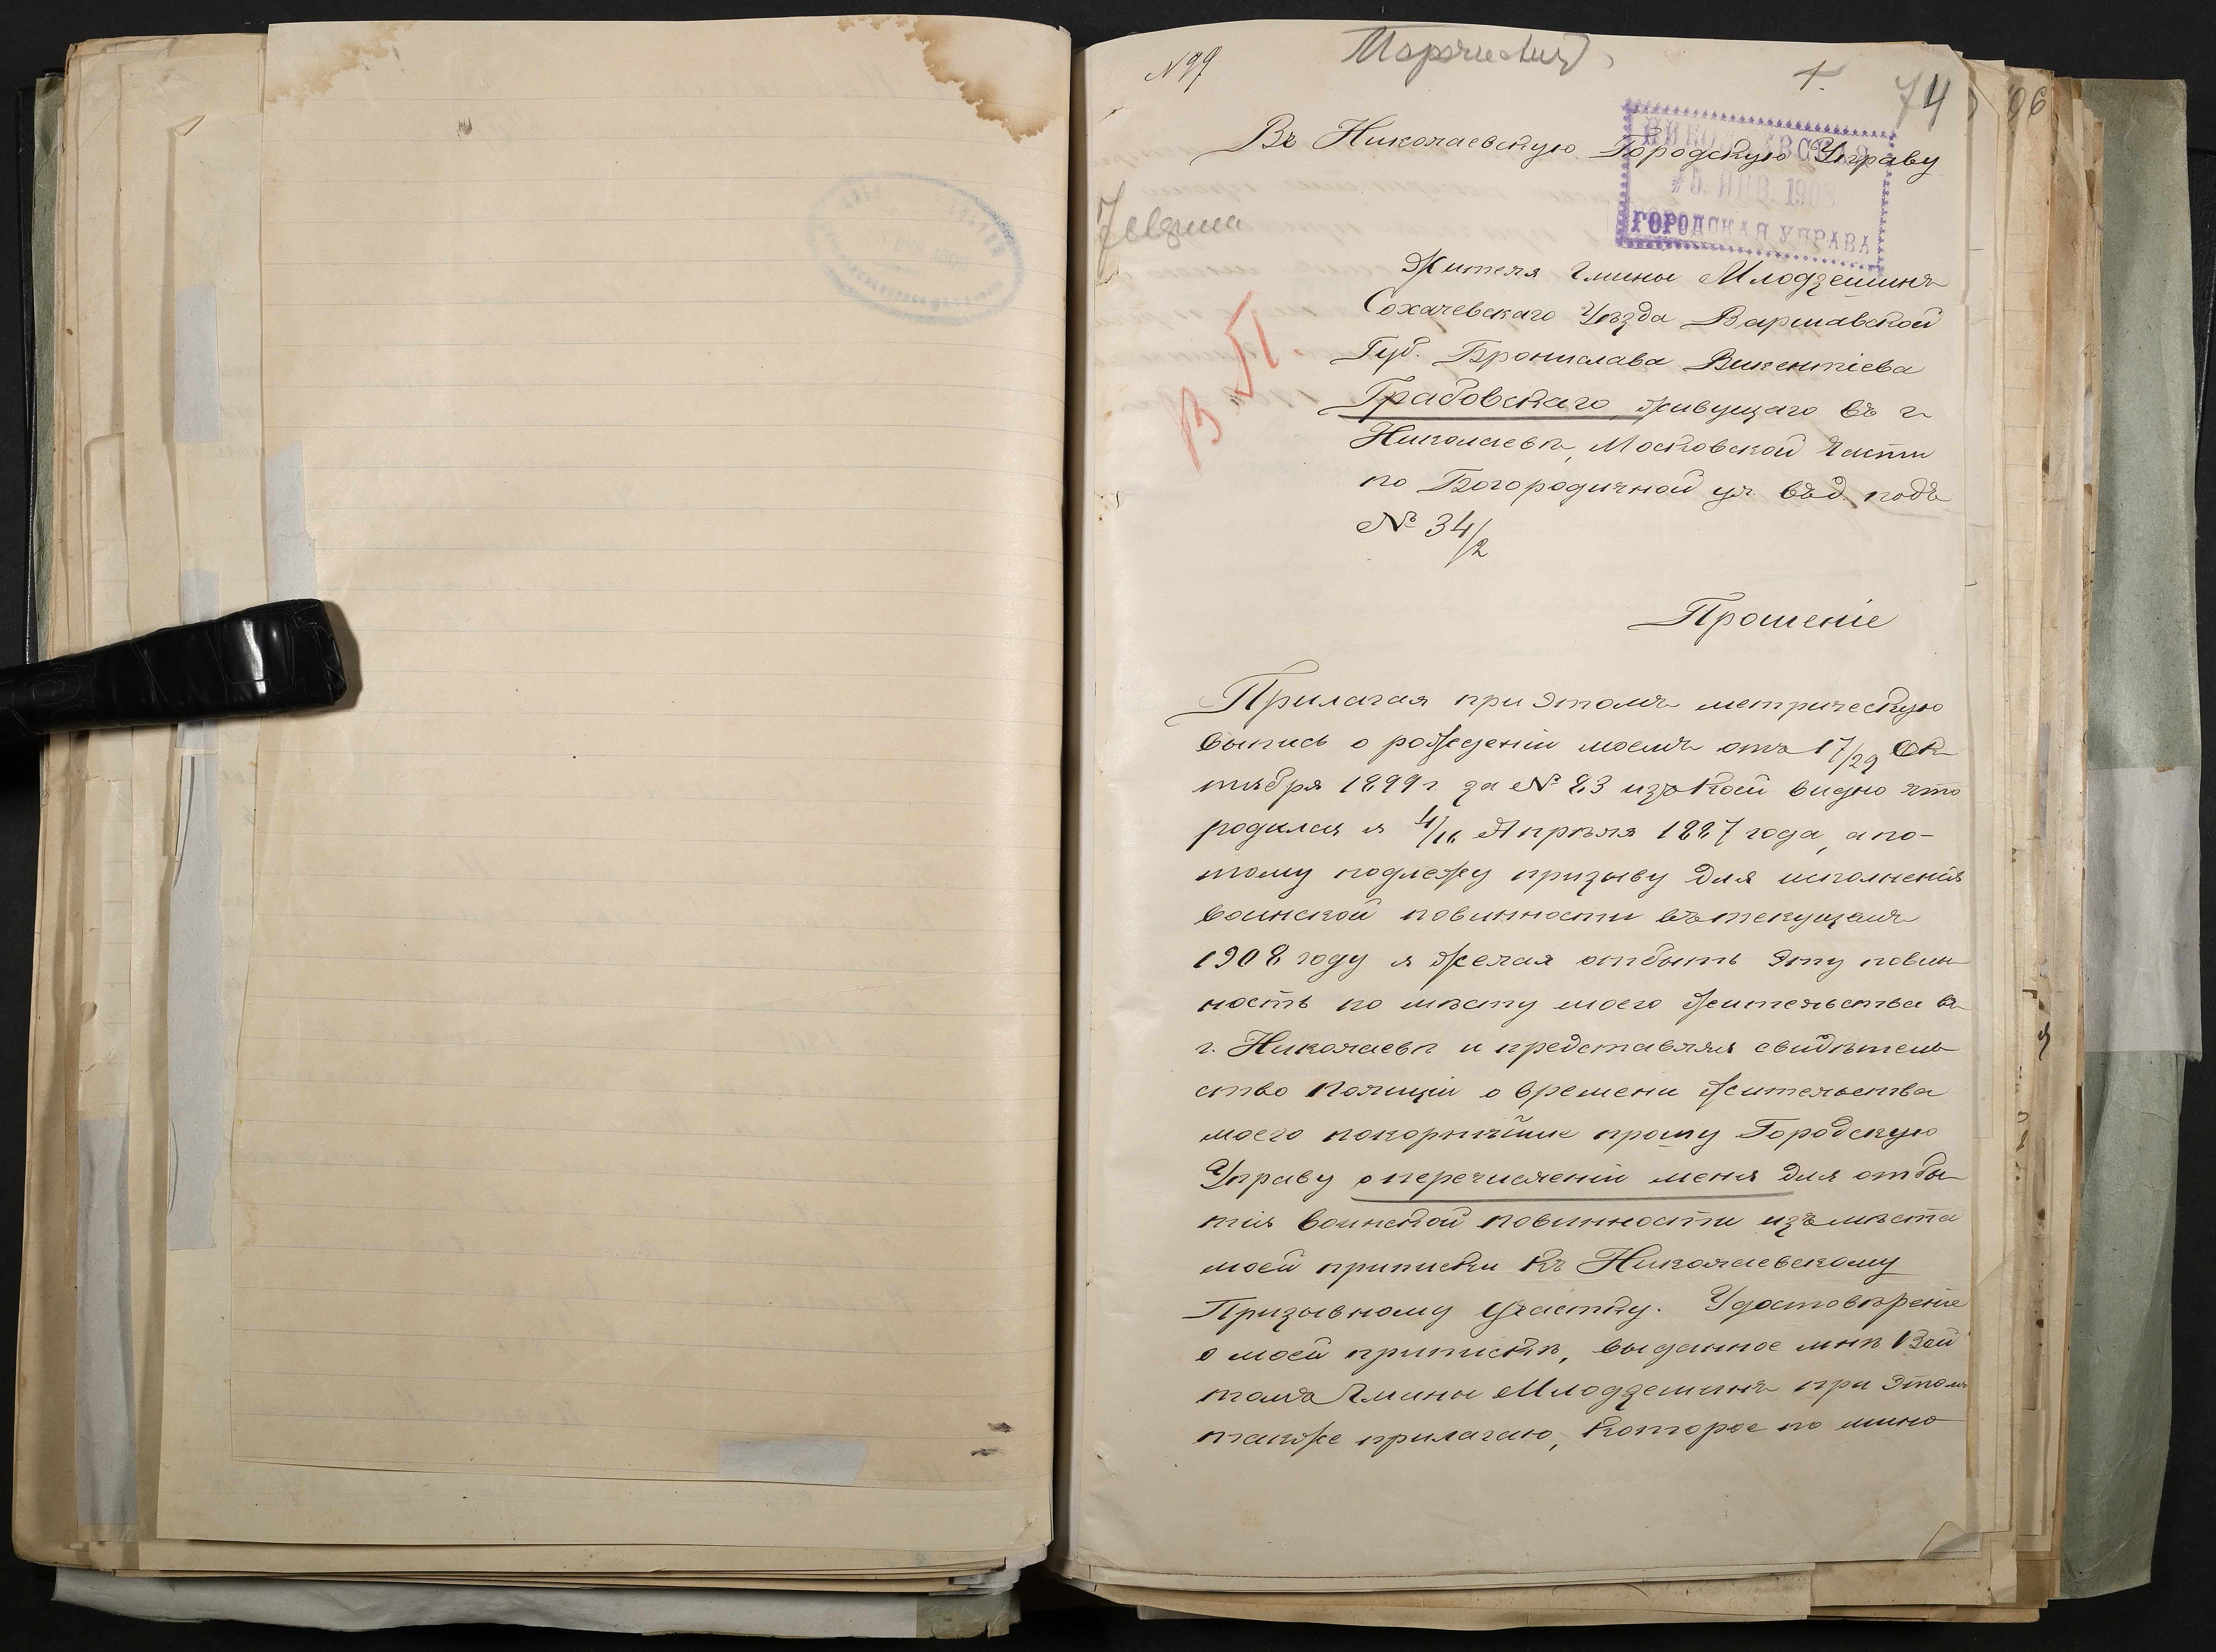 № 99
74
Въ Николаевскую Городскую Управу
НИКОЛАЕВСКАЯ
ЯНВ. 1908
ГОРОДСКАЯ УПРАВА
Жителя Гмины Млодзешинъ
Сохачевскаго Уѣзда Варшавской
Губ. Бронислава Викентіева
Грабовскаго, живущаго въ г
Николаевѣ, Московской Части
по Богородичной ул. въ д. подъ
№ 34/2
В П.
Прошеніе
Прилагая при этомъ метрическую
выпись о рожденіи моемъ отъ 17/29 Ок
тября 1899 г за № 83 изъ коей видно что
родился я 4/16 Апрѣля 1887 года, а по-
тому подлежу призыву для исполненія
воинской повинности въ текущемъ
1908 году я желая отбыть эту повин
ность по мѣсту моего жительства въ
г. Николаевѣ и представляя свидѣтель
ство Полиціи о времени жительства
моего покорнѣйше прошу Городскую
Управу о перечисленіи меня для отбы
тія воинской повинности изъ мѣста
моей приписки къ Николаевскому
Призывному участку. Удостовѣреніе
о моей припискѣ, выданное мнѣ Вой
томъ Гмины Млодзешинъ при этомъ
также прилагаю, которое по мино